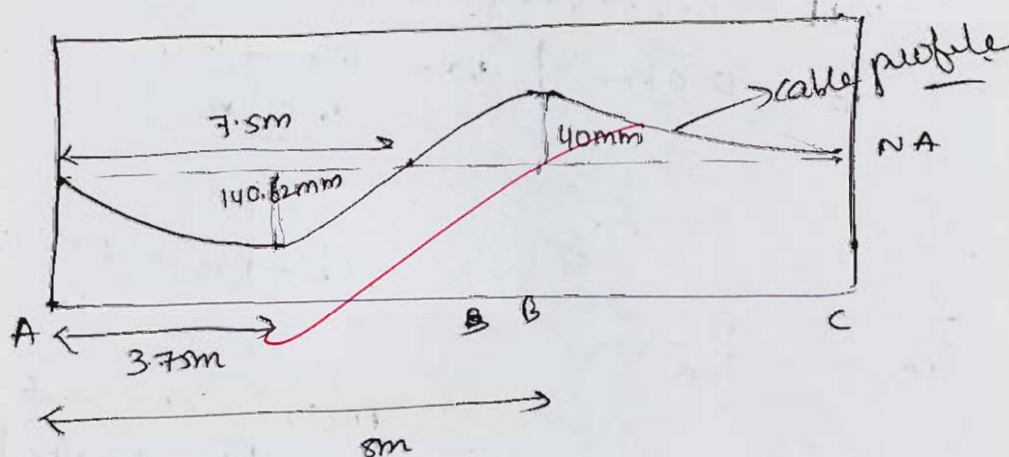 cable profile
7.5m
40mm
NA
140.62mm
A
B
B
C
3.75m
8m